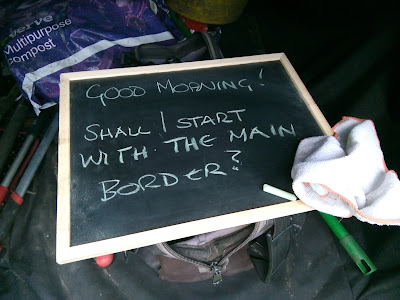 erve
Multipurpose
compost
GOOD MORNING!
SHALL I START
WITH THE MAIN
BORDER?